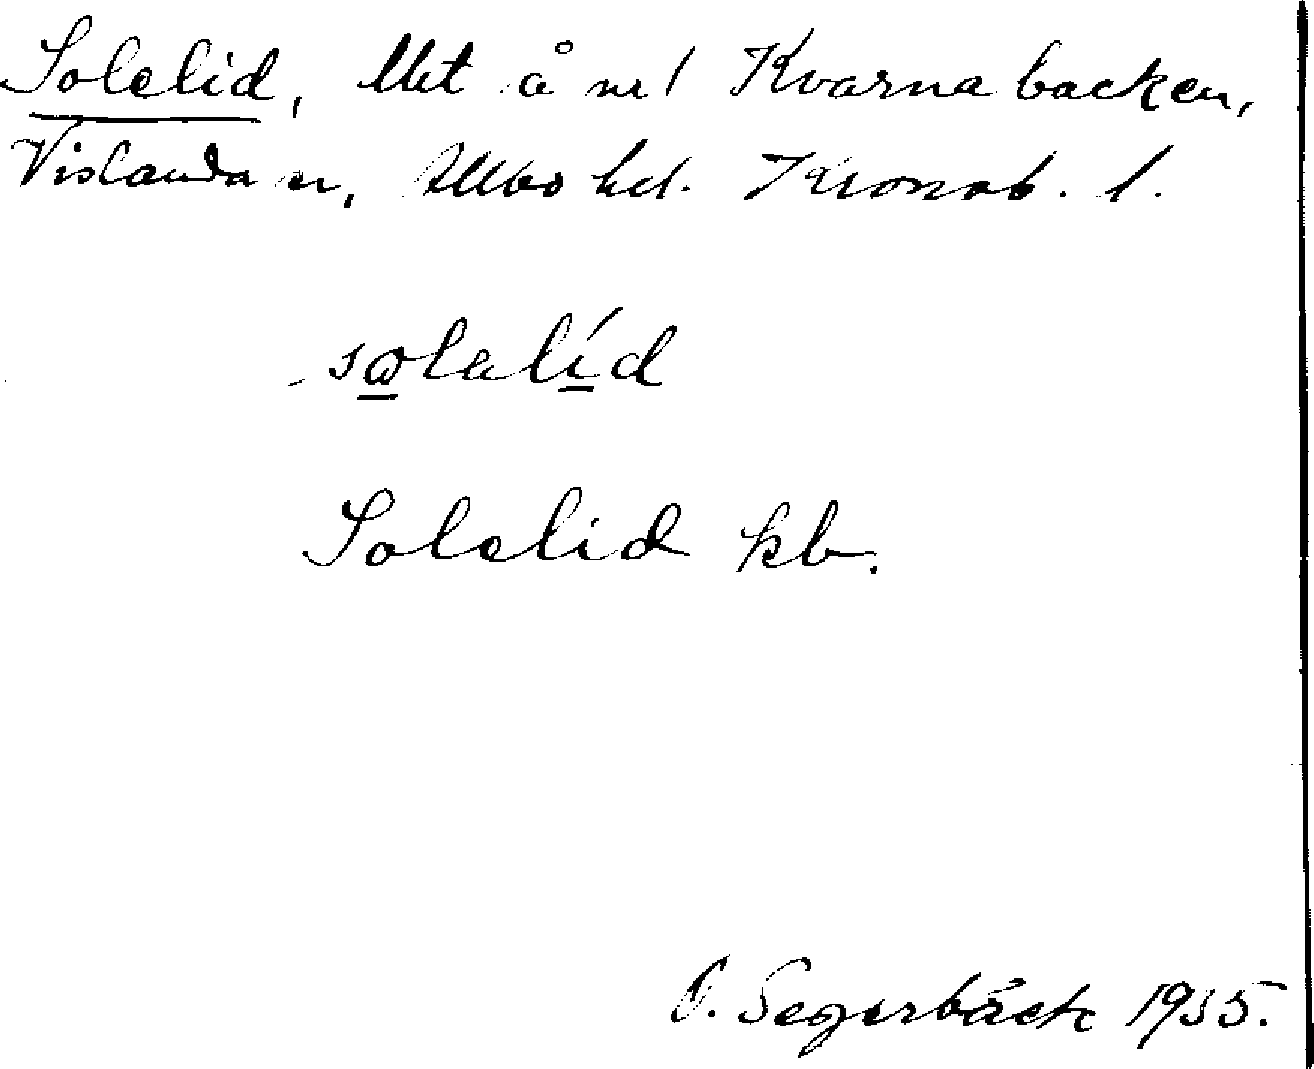 Solelid, lht å nr 1 Kvarnabacken,
Vislanda sn, Allbo hd. Kronob. l.
solalíd
Solelid kb.
O. Segerbäck 1935.